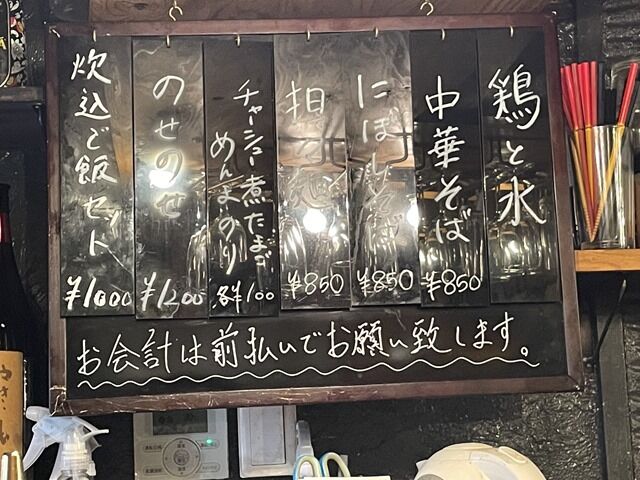 鶏と水
中華そば
¥850
にぼしそば
¥850
担々麺
¥850
チャーシュー煮たまご
めんま のり
各¥100
のせのせ
¥1200
炊込ご飯セット
¥1000
お会計は前払いでお願い致します。